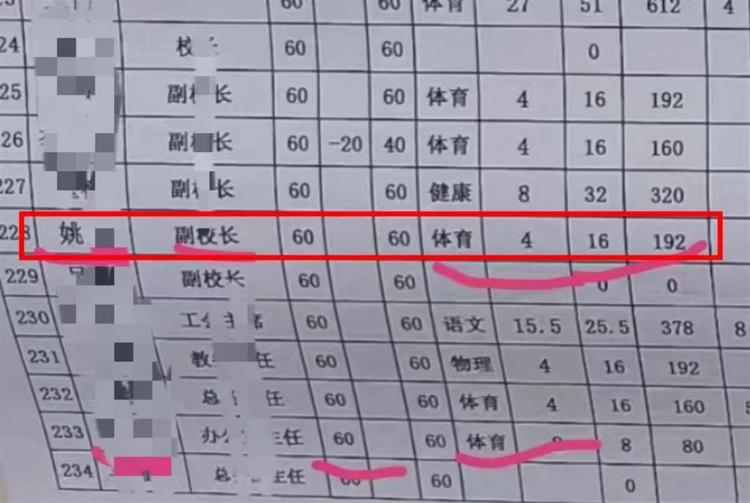 60 60 体育 27 51 612 4
24 校长 60 60 0
25 副校长 60 60 体育 4 16 192
26 副校长 60 -20 40 体育 4 16 160
227 副校长 60 60 健康 8 32 320
228 姚 副校长 60 60 体育 4 16 192
229 副校长 60 60 0 0
230 工会主席 60 60 语文 15.5 25.5 378 8
231 教 任 60 60 物理 4 16 192
232 总 任 60 60 体育 4 16 160
233 办公 主任 60 60 体育 8 80
234 总 主任 60 0